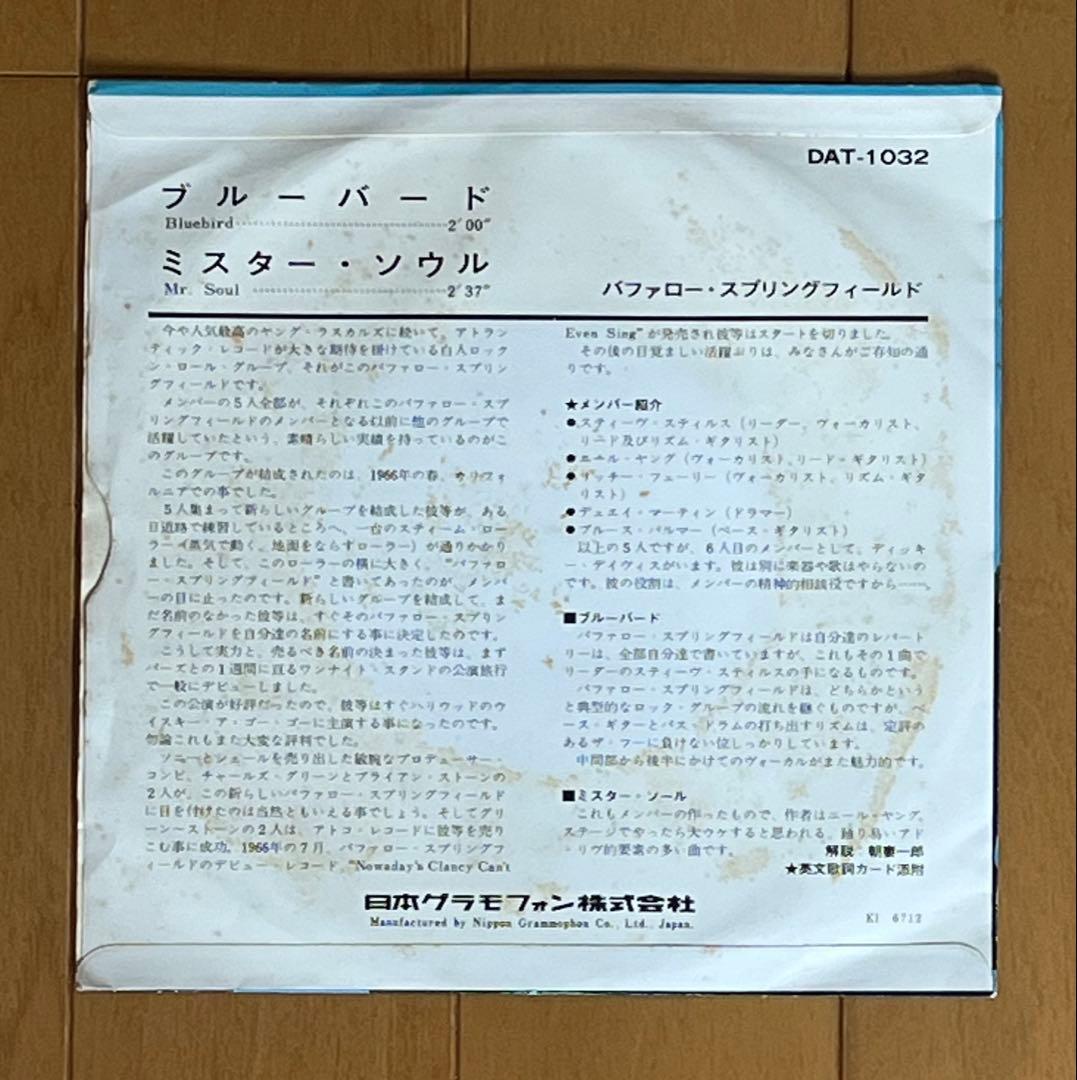 DAT-1032
ブルーバード
Bluebird 2′00″
ミスター・ソウル
Mr. Soul 2′37″
バファロー・スプリングフィールド
今や人気最高のヤング・ラスカルズに続いて、アトラン
ティック・レコードが大きな期待を掛けている白人ロック
ン・ロール・グループ、それがこのバファロー・スプリン
グフィールドです。
メンバーの5人全部が、それぞれこのバファロー・スプ
リングフィールドのメンバーとなる以前に他のグループで
活躍していたという、素晴らしい実績を持っているのがこ
のグループです。
このグループが結成されたのは、1966年の春、カリフォ
ルニアでの事でした。
5人集まって新らしいグループを結成した彼等が、ある
日道路で練習しているところへ、一台のスティーム・ロー
ラー（蒸気で動く、地面をならすローラー）が通りかかり
ました。そして、このローラーの横に大きく、“バファロ
ー・スプリングフィールド”と書いてあったのが、メンバ
ーの目に止ったのです。新らしいグループを結成して、ま
だ名前のなかった彼等は、すぐそのバファロー・スプリン
グフィールドを自分達の名前にする事に決定したのです。
こうして実力と、売るべき名前の決まった彼等は、まず
バーズとの1週間に亘るワンナイト・スタンドの公演旅行
で一般にデビューしました。
この公演が好評だったので、彼等はすぐハリウッドのウ
イスキー・ア・ゴー・ゴーに主演する事になったのです。
勿論これもまた大変な評判でした。
ソニーとシェールを売り出した敏腕なプロデューサー・
コンビ、チャールズ・グリーンとブライアン・ストーンの
2人が、この新らしいバファロー・スプリングフィールド
に目を付けたのは当然ともいえる事でしょう。そしてグリ
ーン〜ストーンの2人は、アトコ・レコードに彼等を売り
こむ事に成功。1966年の7月、バファロー・スプリングフ
ィールドのデビュー・レコード、“Nowaday's Clancy Can't
Even Sing”が発売され彼等はスタートを切りました。
その後の目覚ましい活躍ぶりは、みなさんがご存知の通
りです。
★メンバー紹介
●スティーヴ・スティルス（リーダー、ヴォーカリスト、
リード及びリズム・ギタリスト）
●ニール・ヤング（ヴォーカリスト、リード・ギタリスト）
●リッチー・フューリー（ヴォーカリスト、リズム・ギタ
リスト）
●デュエイ・マーティン（ドラマー）
●ブルース・パルマー（ベース・ギタリスト）
以上の5人ですが、6人目のメンバーとして、ディッキ
ー・デイヴィスがいます。彼は別に楽器や歌はやらないの
です。彼の役割は、メンバーの精神的相談役ですから――。
■ブルーバード
バファロー・スプリングフィールドは自分達のレパート
リーは、全部自分達で書いていますが、これもその1曲で
リーダーのスティーヴ・スティルスの手になるものです。
バファロー・スプリングフィールドは、どちらかという
と典型的なロック・グループの流れを継ぐものですが、ベ
ース・ギターとバス・ドラムの打ち出すリズムは、定評の
あるザ・フーに負けない位しっかりしています。
中間部から後半にかけてのヴォーカルがまた魅力的です。
■ミスター・ソール
これもメンバーの作ったもので、作者はニール・ヤング。
ステージでやったら大ウケすると思われる、踊り易いアド
・リヴ的要素の多い曲です。
解説 朝妻一郎
★英文歌詞カード添附
日本グラモフォン株式会社
Manufactured by Nippon Grammophon Co., Ltd., Japan.
KI 6712